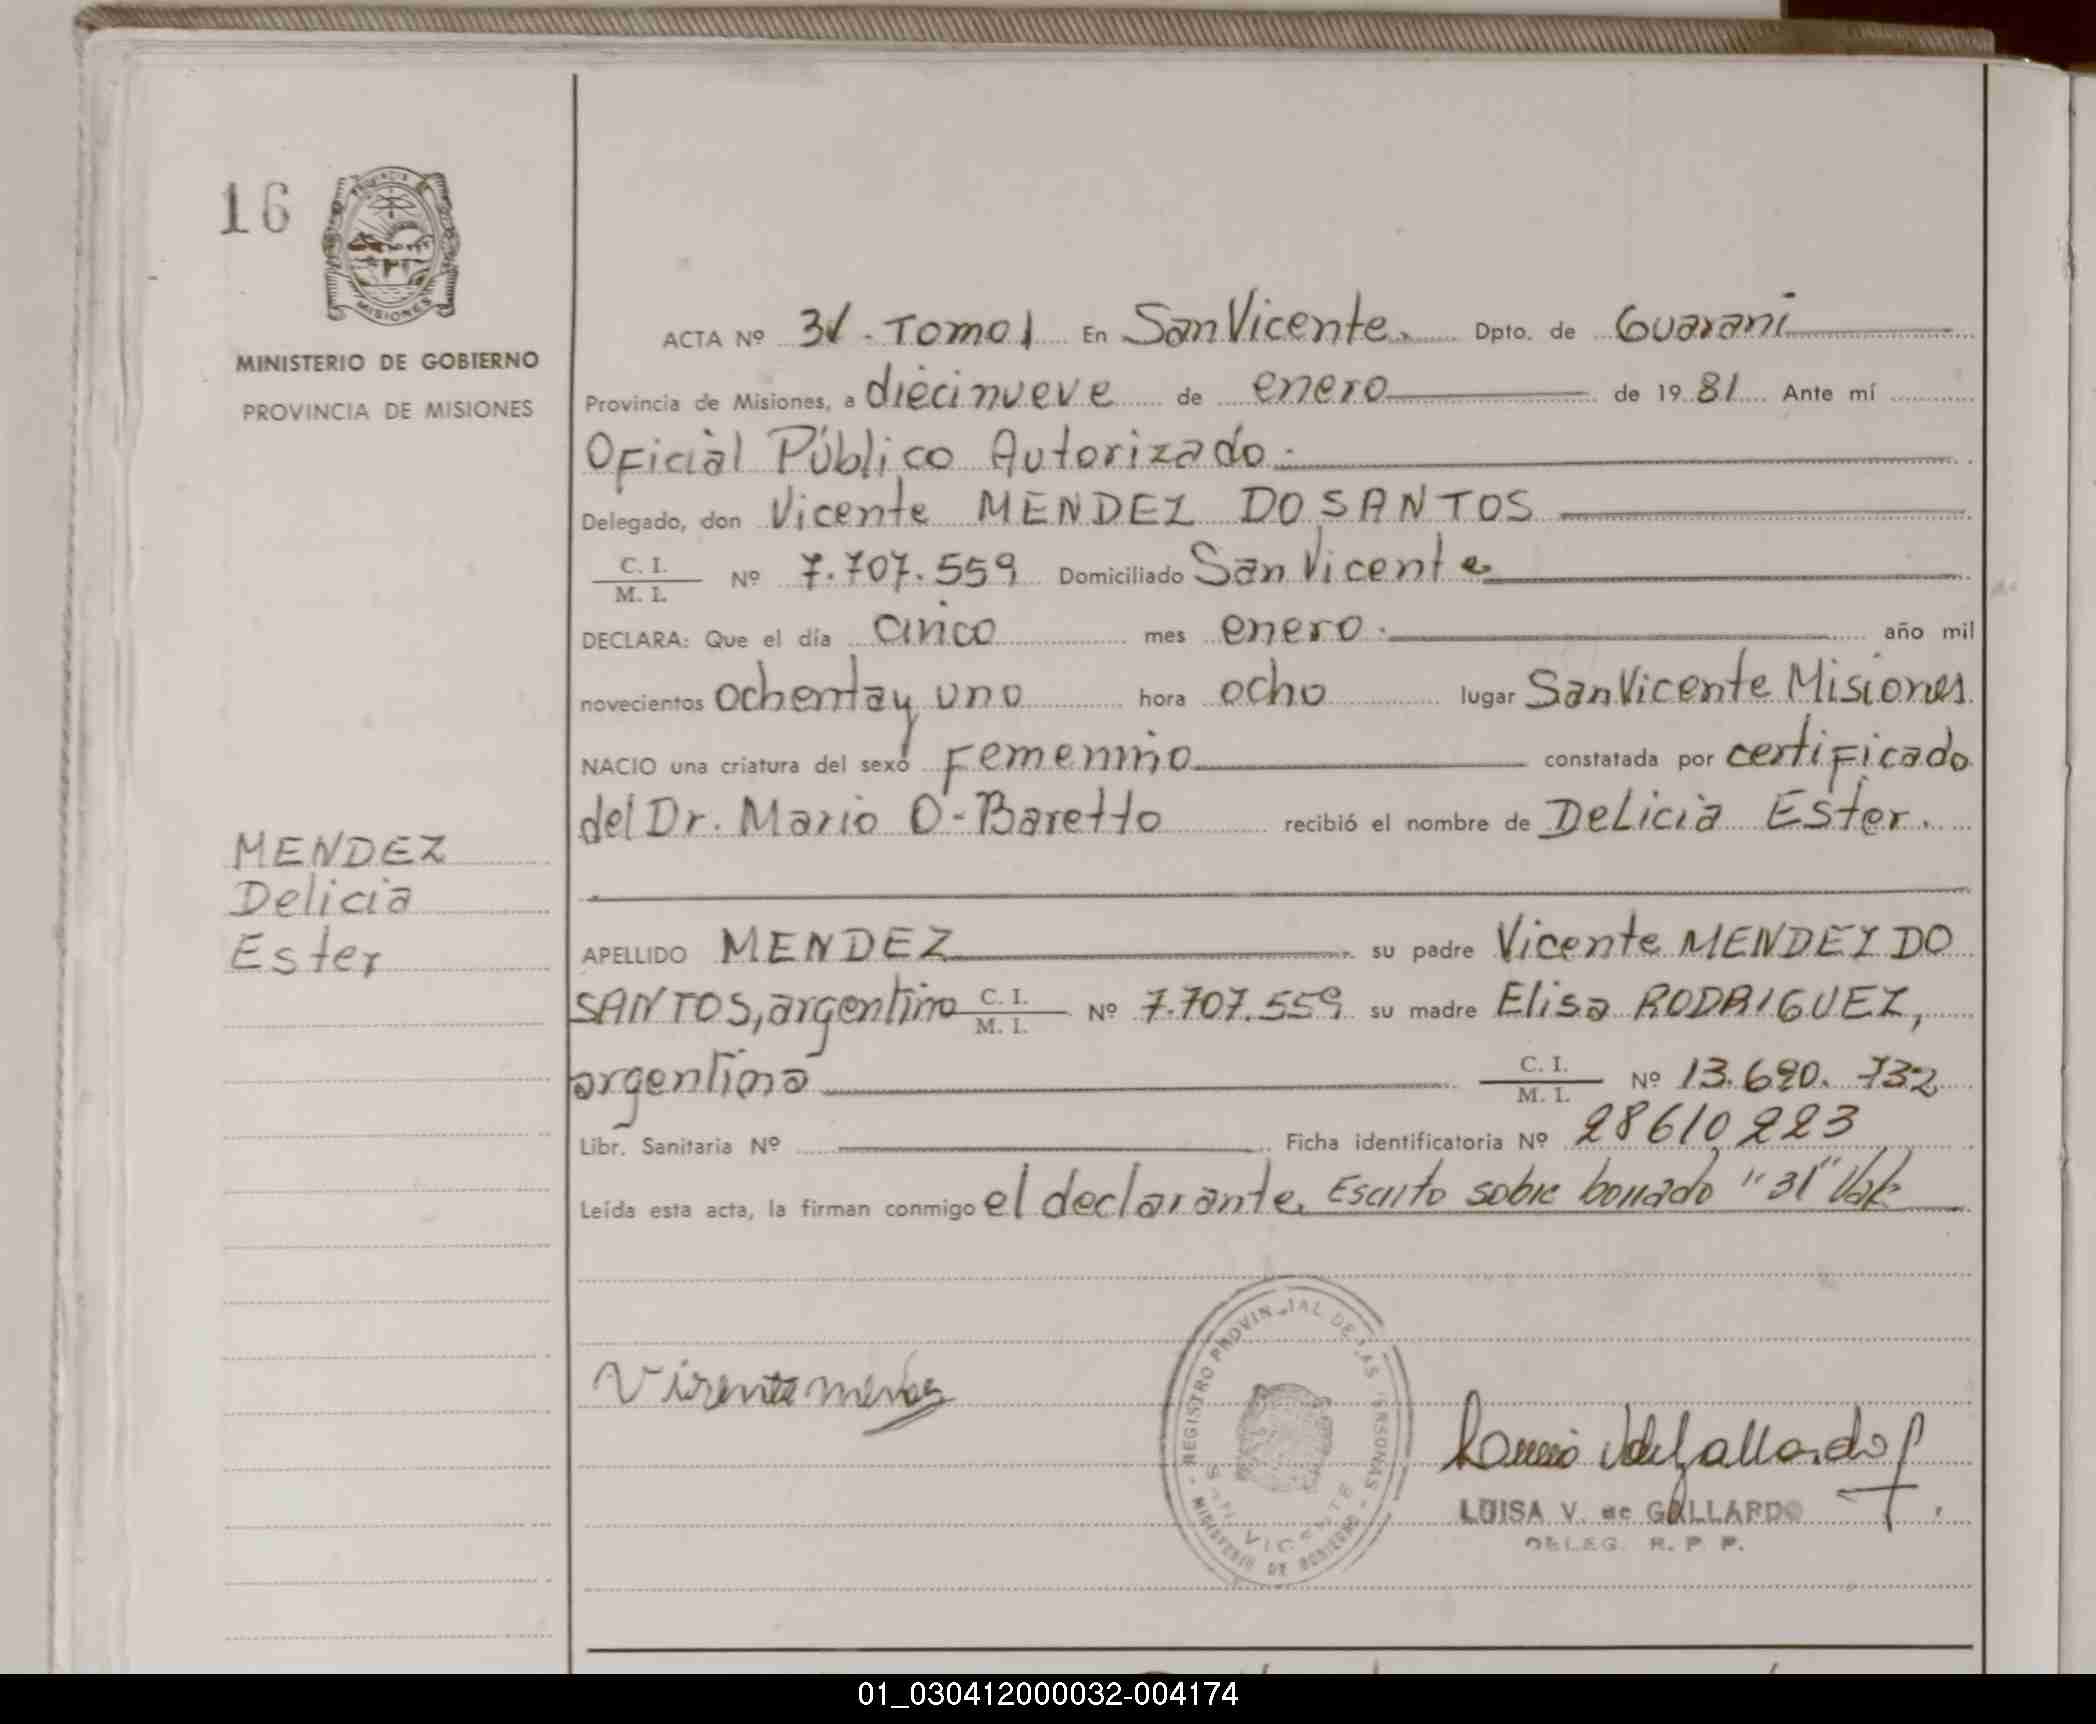 16
PROVINCIA DE
MISIONES
MINISTERIO DE GOBIERNO
PROVINCIA DE MISIONES
MENDEZ
Delicia
Ester
ACTA Nº 31 - Tomo 1 En San Vicente. Dpto. de Guaraní
Provincia de Misiones, a diecinueve de enero de 19 81 Ante mí
Oficial Público Autorizado.
Delegado, don Vicente MENDEZ DO SANTOS
C. I. / M. I. Nº 7.707.559 Domiciliado San Vicente
DECLARA: Que el día cinco mes enero. año mil
novecientos ochenta y uno hora ocho lugar San Vicente Misiones.
NACIO una criatura del sexo Femenino constatada por certificado
del Dr. Mario O-Baretto recibió el nombre de Delicia Ester.
APELLIDO MENDEZ su padre Vicente MENDEZ DO
SANTOS, argentino C. I. / M. I. Nº 7.707.559 su madre Elisa RODRIGUEZ,
argentina C. I. / M. I. Nº 13.690.732
Libr. Sanitaria Nº Ficha identificatoria Nº 28610223
Leída esta acta, la firman conmigo el declarante. Escrito sobre borrado "31" Vale
REGISTRO PROVINCIAL DE LAS PERSONAS - MINISTERIO DE GOBIERNO -
SAN VICENTE
LUISA V. de GALLARDO
DELEG. R. P. P.
01_030412000032-004174